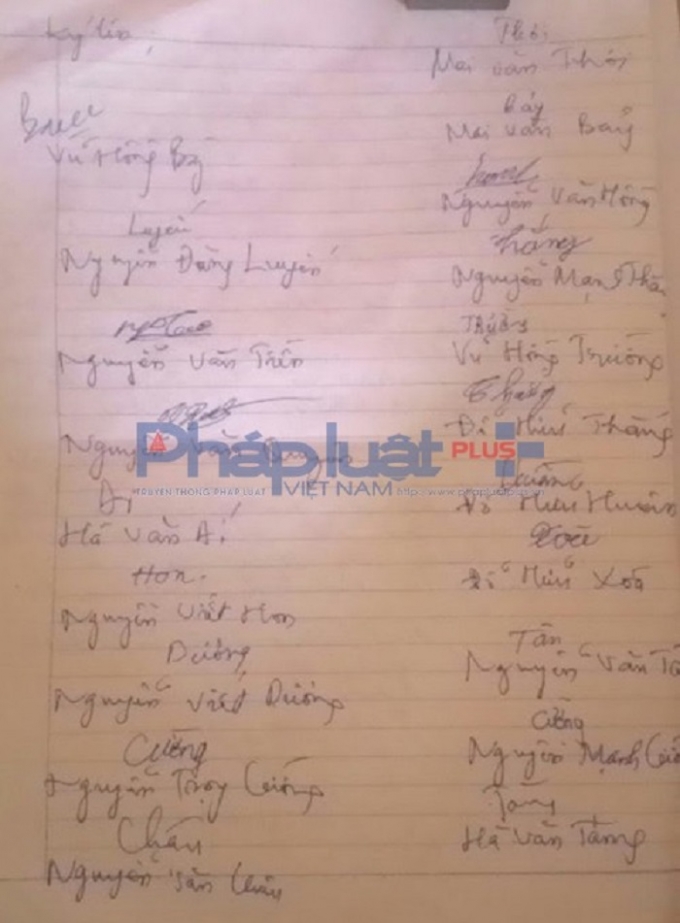 Vũ Hồng Bố
Luyến
Nguyễn Đăng Luyến
Nguyễn Văn Tiến
Nguyễn Văn
Ái
Hà Văn Ái
Hon
Nguyễn Viết Hon
Dưỡng
Nguyễn Viết Dưỡng
Cường
Nguyễn Trọng Cường
Châu
Nguyễn Văn Châu
Thới
Mai Văn Thới
Bảy
Mai Văn Bảy
Nguyễn Văn Hồng
Thắng
Nguyễn Mạnh Thắ
Trường
Vũ Hồng Trường
Thắng
Đỗ Hữu Thắng
Đỗ Hữu
Xoa
Đỗ Hữu Xoa
Tân
Nguyễn Văn Tâ
Cường
Nguyễn Mạnh Cườ
Tăng
Hà Văn Tăng
Pháp luật PLUS
TRUYỀN THÔNG PHÁP LUẬT VIỆT NAM http://www.phapluatplus.vn